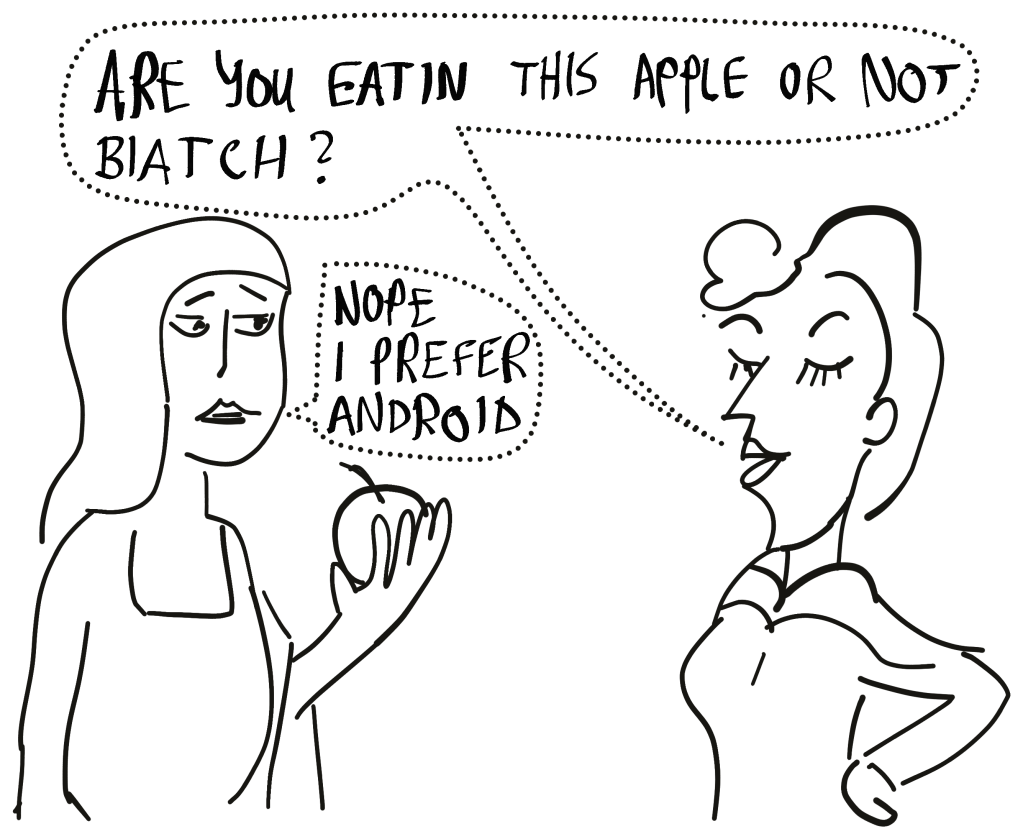 ARE YOU EATIN THIS APPLE OR NOT
BIATCH ?
NOPE
I PREFER
ANDROID